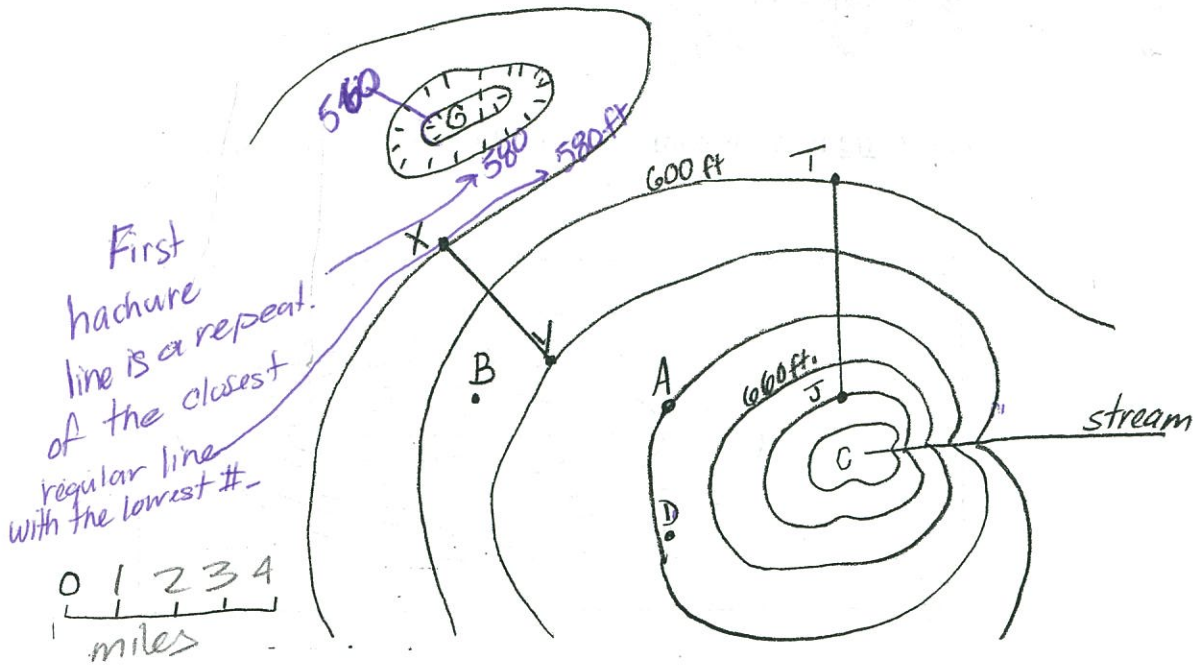 560
G
580
580 ft
600 ft
T
X
First
hachure
line is a repeat.
of the closest
regular line
with the lowest #-
V
B
A
660 ft.
J
C
stream
D
0 1 2 3 4
miles